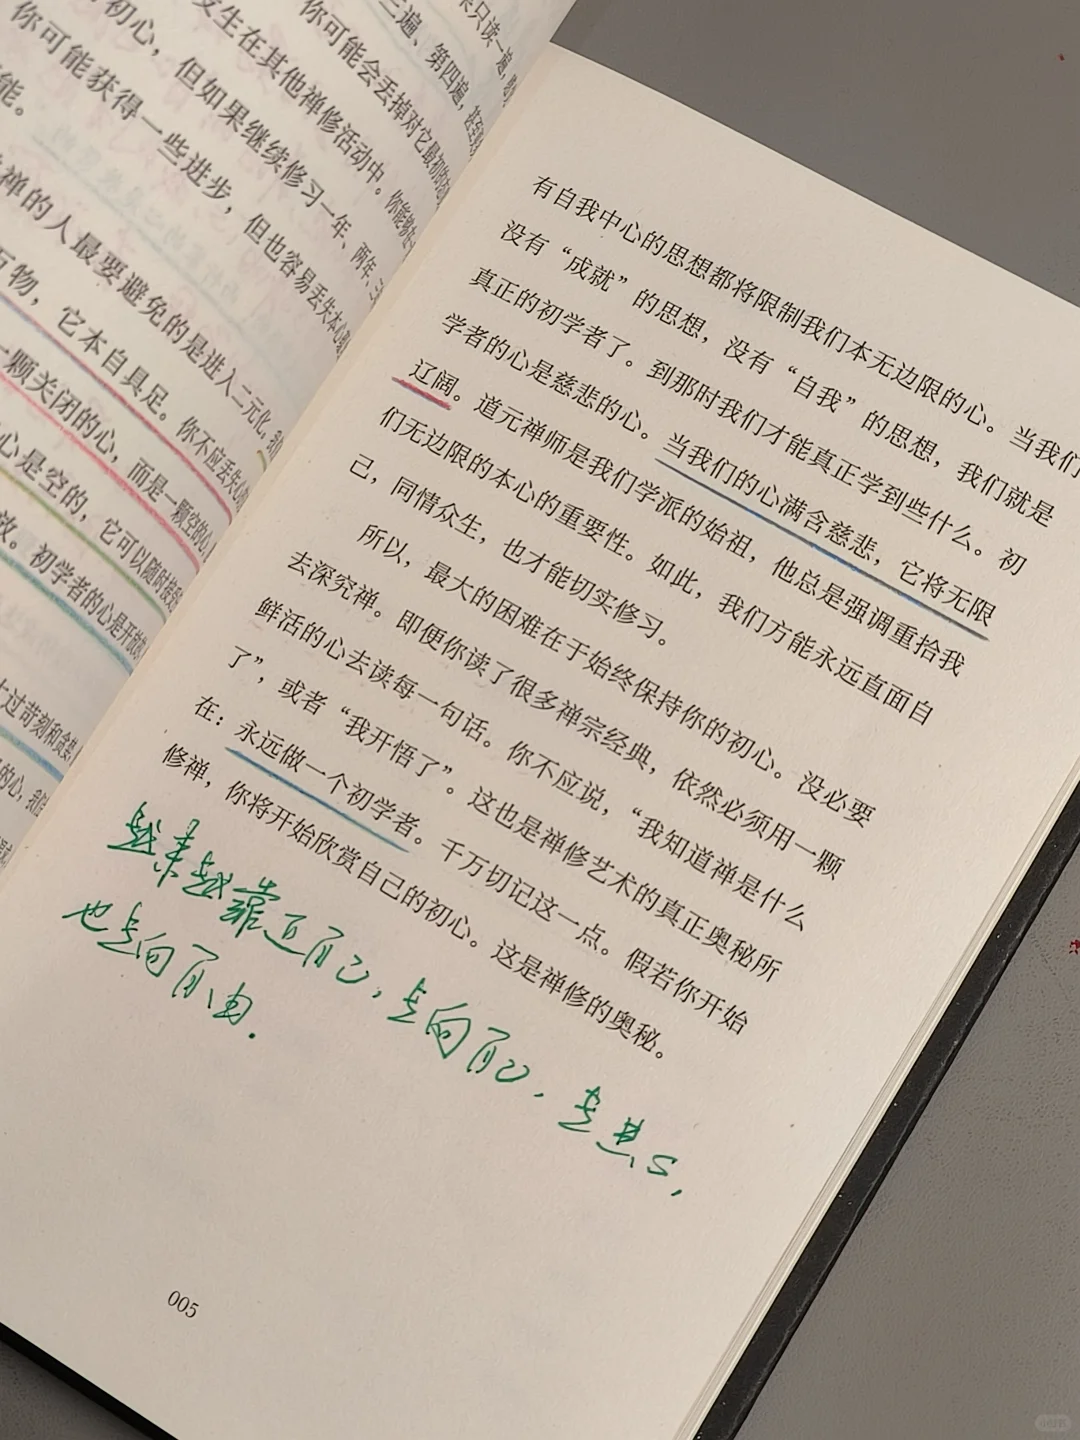 果只读一遍，
三遍、第四遍，甚至
你可能会丢掉对它最初的
发生在其他禅修活动中。你能够在
初心，但如果继续修习一年、两年、三
你可能获得一些进步，但也容易丢失本心
能。
禅的人最要避免的是进入二元化，我
万物，它本自具足。你不应丢失
一颗关闭的心，而是一颗空的心
心是空的，它可以随时
效。初学者的心是开放
过苛刻和贪婪
的心，我
有自我中心的思想都将限制我们本无边限的心。当我们
没有“成就”的思想，没有“自我”的思想，我们就是
真正的初学者了。到那时我们才能真正学到些什么。初
学者的心是慈悲的心。当我们的心满含慈悲，它将无限
辽阔。道元禅师是我们学派的始祖，他总是强调重拾我
们无边限的本心的重要性。如此，我们方能永远直面自
己，同情众生，也才能切实修习。
所以，最大的困难在于始终保持你的初心。没必要
去深究禅。即便你读了很多禅宗经典，依然必须用一颗
鲜活的心去读每一句话。你不应说，“我知道禅是什么
了”，或者“我开悟了”。这也是禅修艺术的真正奥秘所
在：永远做一个初学者。千万切记这一点。假若你开始
修禅，你将开始欣赏自己的初心。这是禅修的奥秘。
越来越靠近自己，走向自己，
也走向自由.
005